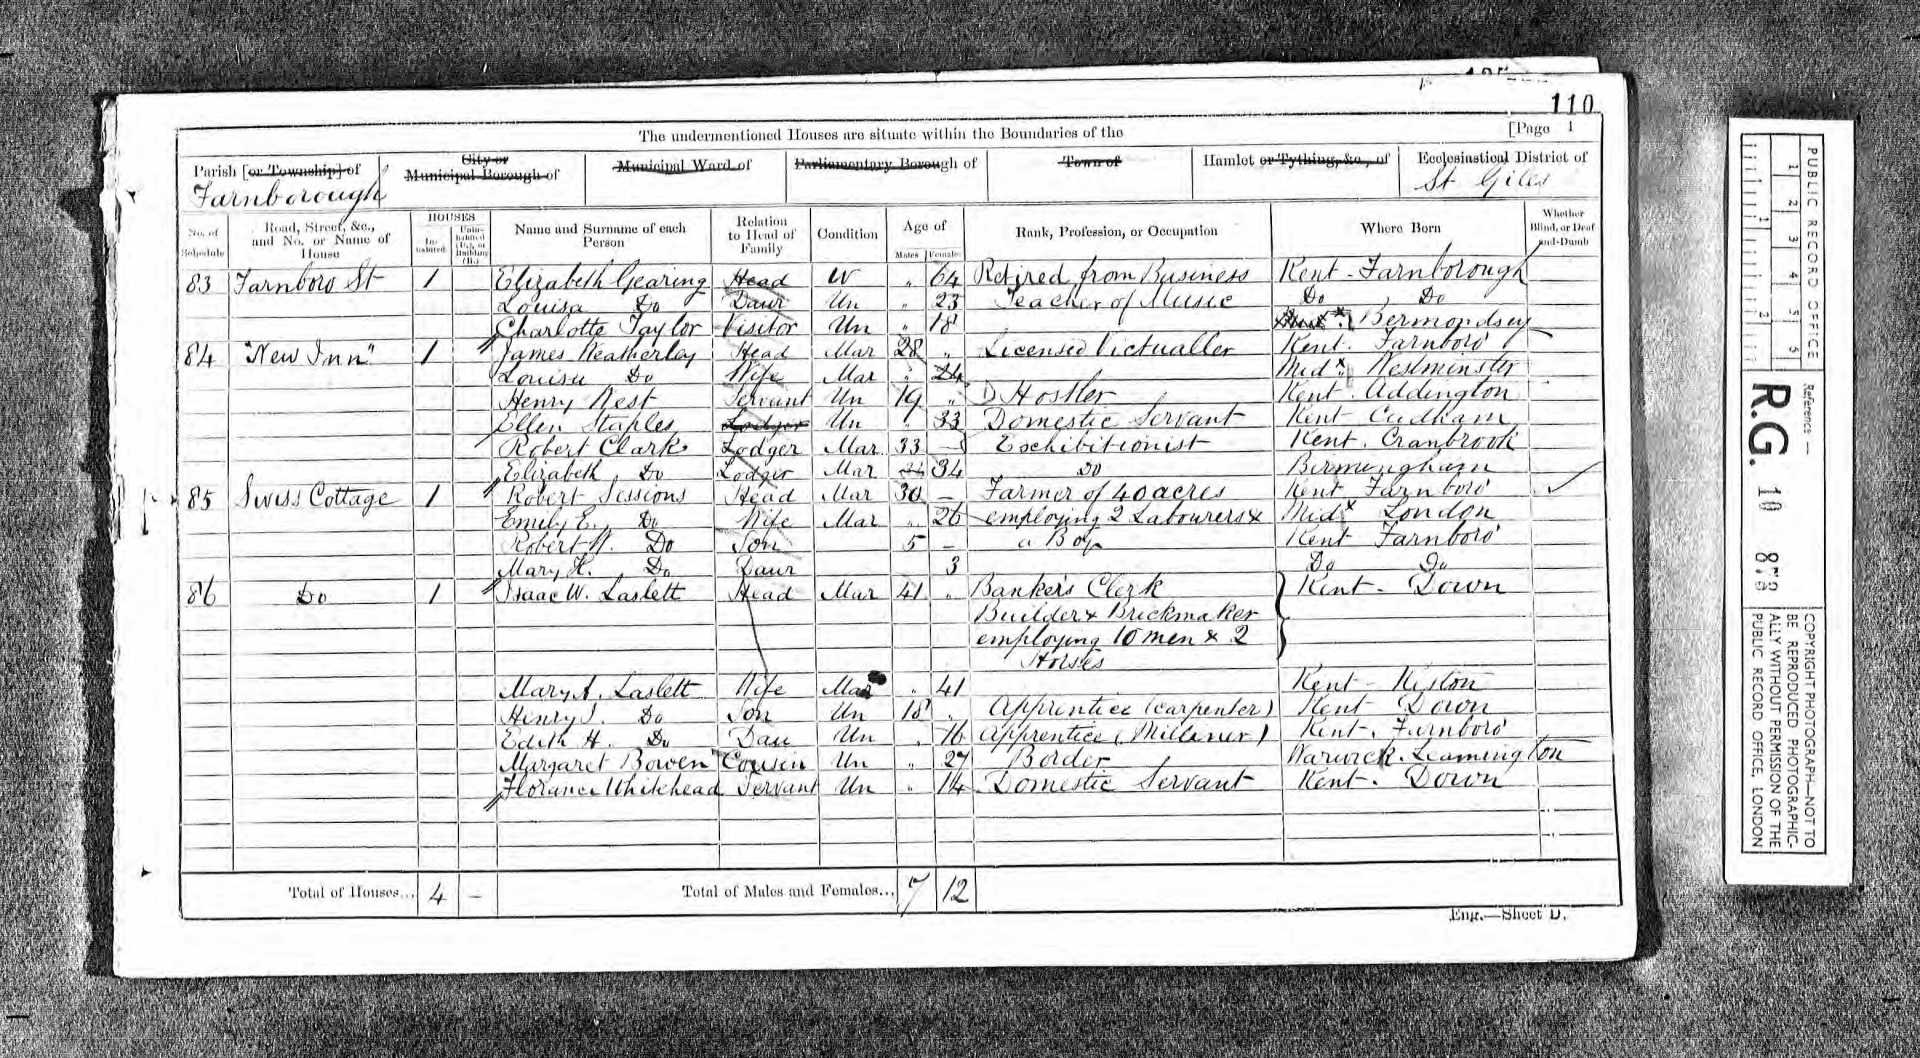 110
The undermentioned Houses are situate within the Boundaries of the [Page 1
Parish [or Township] of Farnborough
City or Municipal Borough of
Municipal Ward of
Parliamentary Borough of
Town of
Hamlet or Tything, &c., of
Ecclesiastical District of St Giles
No. of Schedule
Road, Street, &c., and No. or Name of House
HOUSES
Inhabited
Uninhabited (U.), or Building (B.)
Name and Surname of each Person
Relation to Head of Family
Condition
Age of
Males Females
Rank, Profession, or Occupation
Where Born
Whether Blind, or Deaf and-Dumb
83 Farnboro St 1 Elizabeth Gearing Head W " 64 Retired from Business Kent - Farnborough
Louisa Do Daur Un " 23 Teacher of Music Do Do
Charlotte Taylor Visitor Un " 18 Bermondsey
84 "New Inn" 1 James Weatherley Head Mar 28 " Licensed Victualler Kent. Farnboro'
Louisa Do Wife Mar " 24 Midx Westminster
Henry West Servant Un 19 " Hostler Kent. Addington
Ellen Staples Lodger Un " 33 Domestic Servant Kent Cudham
Robert Clark Lodger Mar 33 - Exchibitionist Kent. Cranbrook
Elizabeth Do Lodger Mar 34 Do Birmingham
85 Swiss Cottage 1 Robert Sessions Head Mar 30 - Farmer of 40 acres Kent Farnboro'
Emily E. Do Wife Mar " 26 employing 2 Labourers & Midx London
Robert W. Do Son 5 - a Boy Kent Farnboro'
Mary H. Do Daur 3 Do Do
86 Do 1 Isaac W. Laslett Head Mar 41 " Banker's Clerk Kent - Down
Builder & Brickmaker
employing 10 men & 2
Horses
Mary A. Laslett Wife Mar " 41 Kent - Keston
Henry J. Do Son Un 18 " Apprentice (carpenter) Kent Down
Edith H. Do Dau Un " 16 Apprentice (Milliner) Kent. Farnboro'
Margaret Bowen Cousin Un " 27 Border Warwick. Leamington
Florance Whitehead Servant Un " 14 Domestic Servant Kent. Down
Total of Houses... 4 - Total of Males and Females... 7 12
Eng.—Sheet D.
PUBLIC RECORD OFFICE
1 2 3 4 5 6
1 2
Reference:—
R.G. 10 873
COPYRIGHT PHOTOGRAPH—NOT TO
BE REPRODUCED PHOTOGRAPHIC-
ALLY WITHOUT PERMISSION OF THE
PUBLIC RECORD OFFICE, LONDON